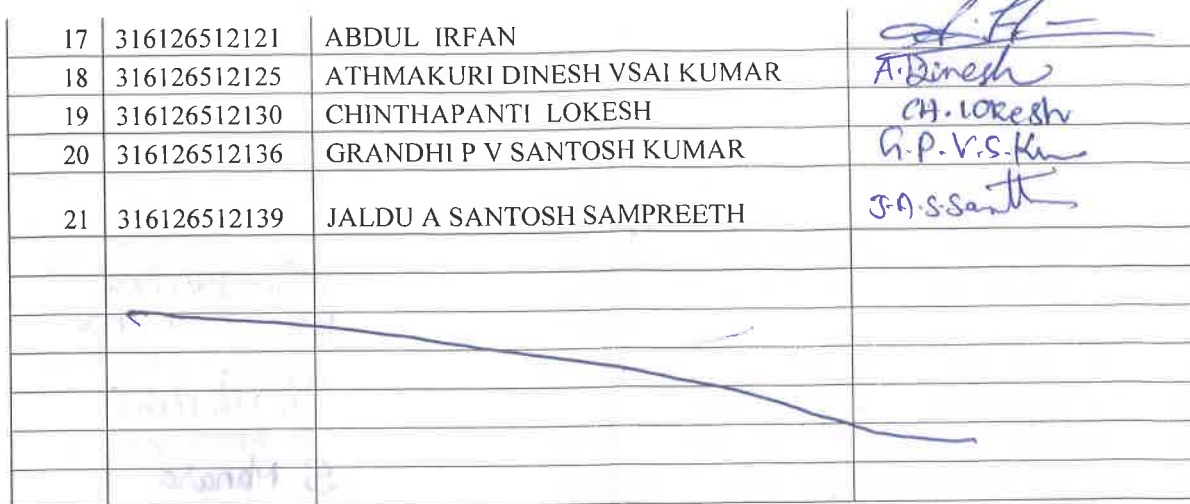 17 316126512121 ABDUL IRFAN
18 316126512125 ATHMAKURI DINESH VSAI KUMAR A.Dinesh
19 316126512130 CHINTHAPANTI LOKESH CH.LOKesh
20 316126512136 GRANDHI P V SANTOSH KUMAR G.P.V.S.
21 316126512139 JALDU A SANTOSH SAMPREETH J.A.S.